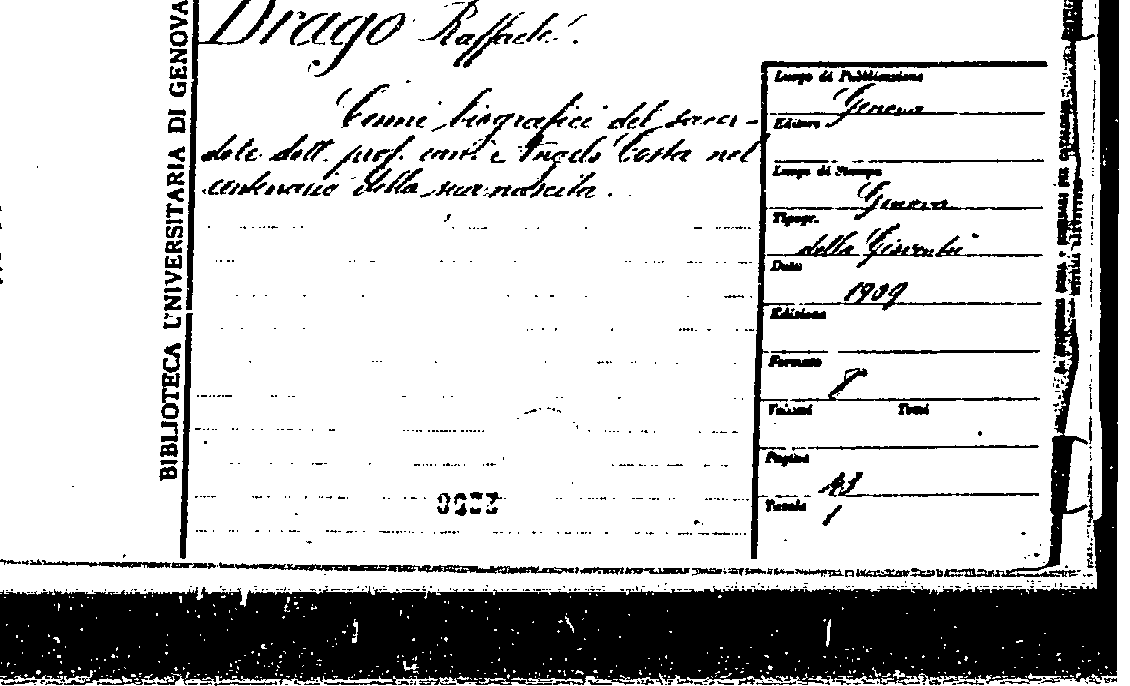 BIBLIOTECA UNIVERSITARIA DI GENOVA
Drago Raffaele.
Cenni biografici del sacer-
dote dott. prof. can. Angelo Costa nel
centenario della sua nascita.
Luogo di Pubblicazione
Genova
Editore
Luogo di Stampa
Genova
Tipogr.
della Gioventù
Data
1909
Edizione
Formato
8°
Volumi Tomi
Pagine
43
Tavole
1